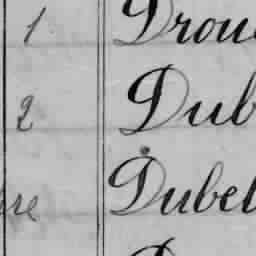 1 Drou
2 Dub
re Dubel